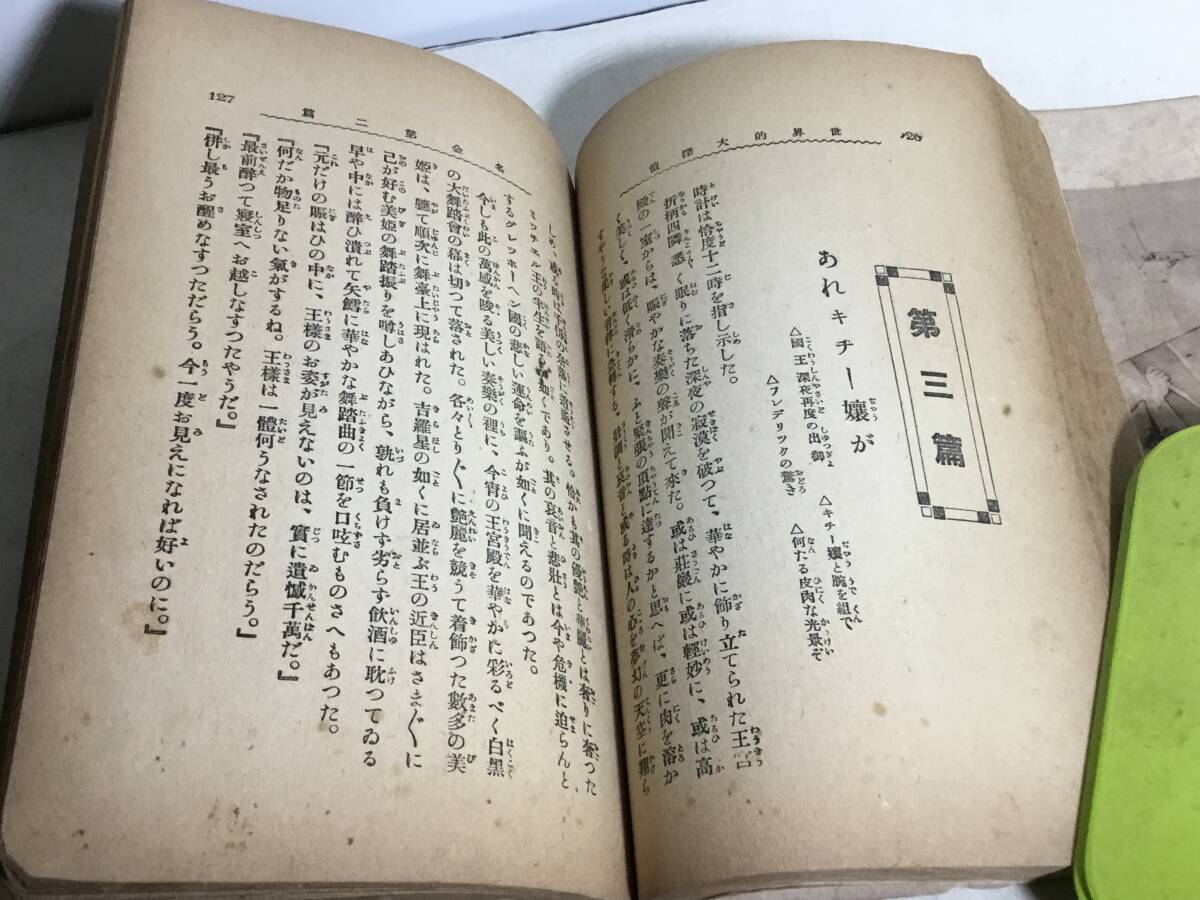 126
世界的大探偵
第三篇
あれキチー孃が
△キチー孃と腕を組で
△國王深夜再度の出御
△何たる皮肉な光景ぞ
△フレデリックの驚き
時計は恰度十二時を指し示した。
折柄四隣悉く眠りに落ちた深夜の寂漠を破つて、華やかに飾り立てられた王宮
殿の一室からは、賑やかな奏樂の聲が聞えて來た。或は莊嚴に或は輕妙に、或は高
く美しく、或は低く滑らかに、ふと緊張の頂點に達するかと思へば、更に肉を溶か
或る時は人の心を夢幻の天空に翔ら
127
名金第二篇
しめ、
ミツチエル王の半生を語る如くであり。其の哀音と悲壯とは今や危機に迫らんと
するグレツホーヘン國の悲しい運命を謳ふが如くに聞えるのであつた。
今しも此の萬感を唆る美しい奏樂の裡に、今宵の王宮殿を華やかに彩るべく白黑
の大舞踏會の幕は切つて落された。各々とり〴〵に艶麗を競うて着飾つた數多の美
姫は、軈て順次に舞臺上に現はれた。吉羅星の如くに居並ぶ王の近臣はさま〴〵に
己が好む美姫の舞踏振りを噂しあひながら、孰れも負けず劣らず飲酒に耽つてゐる
早や中には醉ひ潰れて矢鱈に華やかな舞踏曲の一節を口吟むものさへもあつた。
『元だけの賑はひの中に、王樣のお姿が見えないのは、實に遺憾千萬だ。』
『何だか物足りない氣がするね。王樣は一體何うなされたのだらう。』
『最前醉つて寢室へお越しなすつたやうだ。』
『併し最うお醒めなすつただらう。今一度お見えになれば好いのに。』